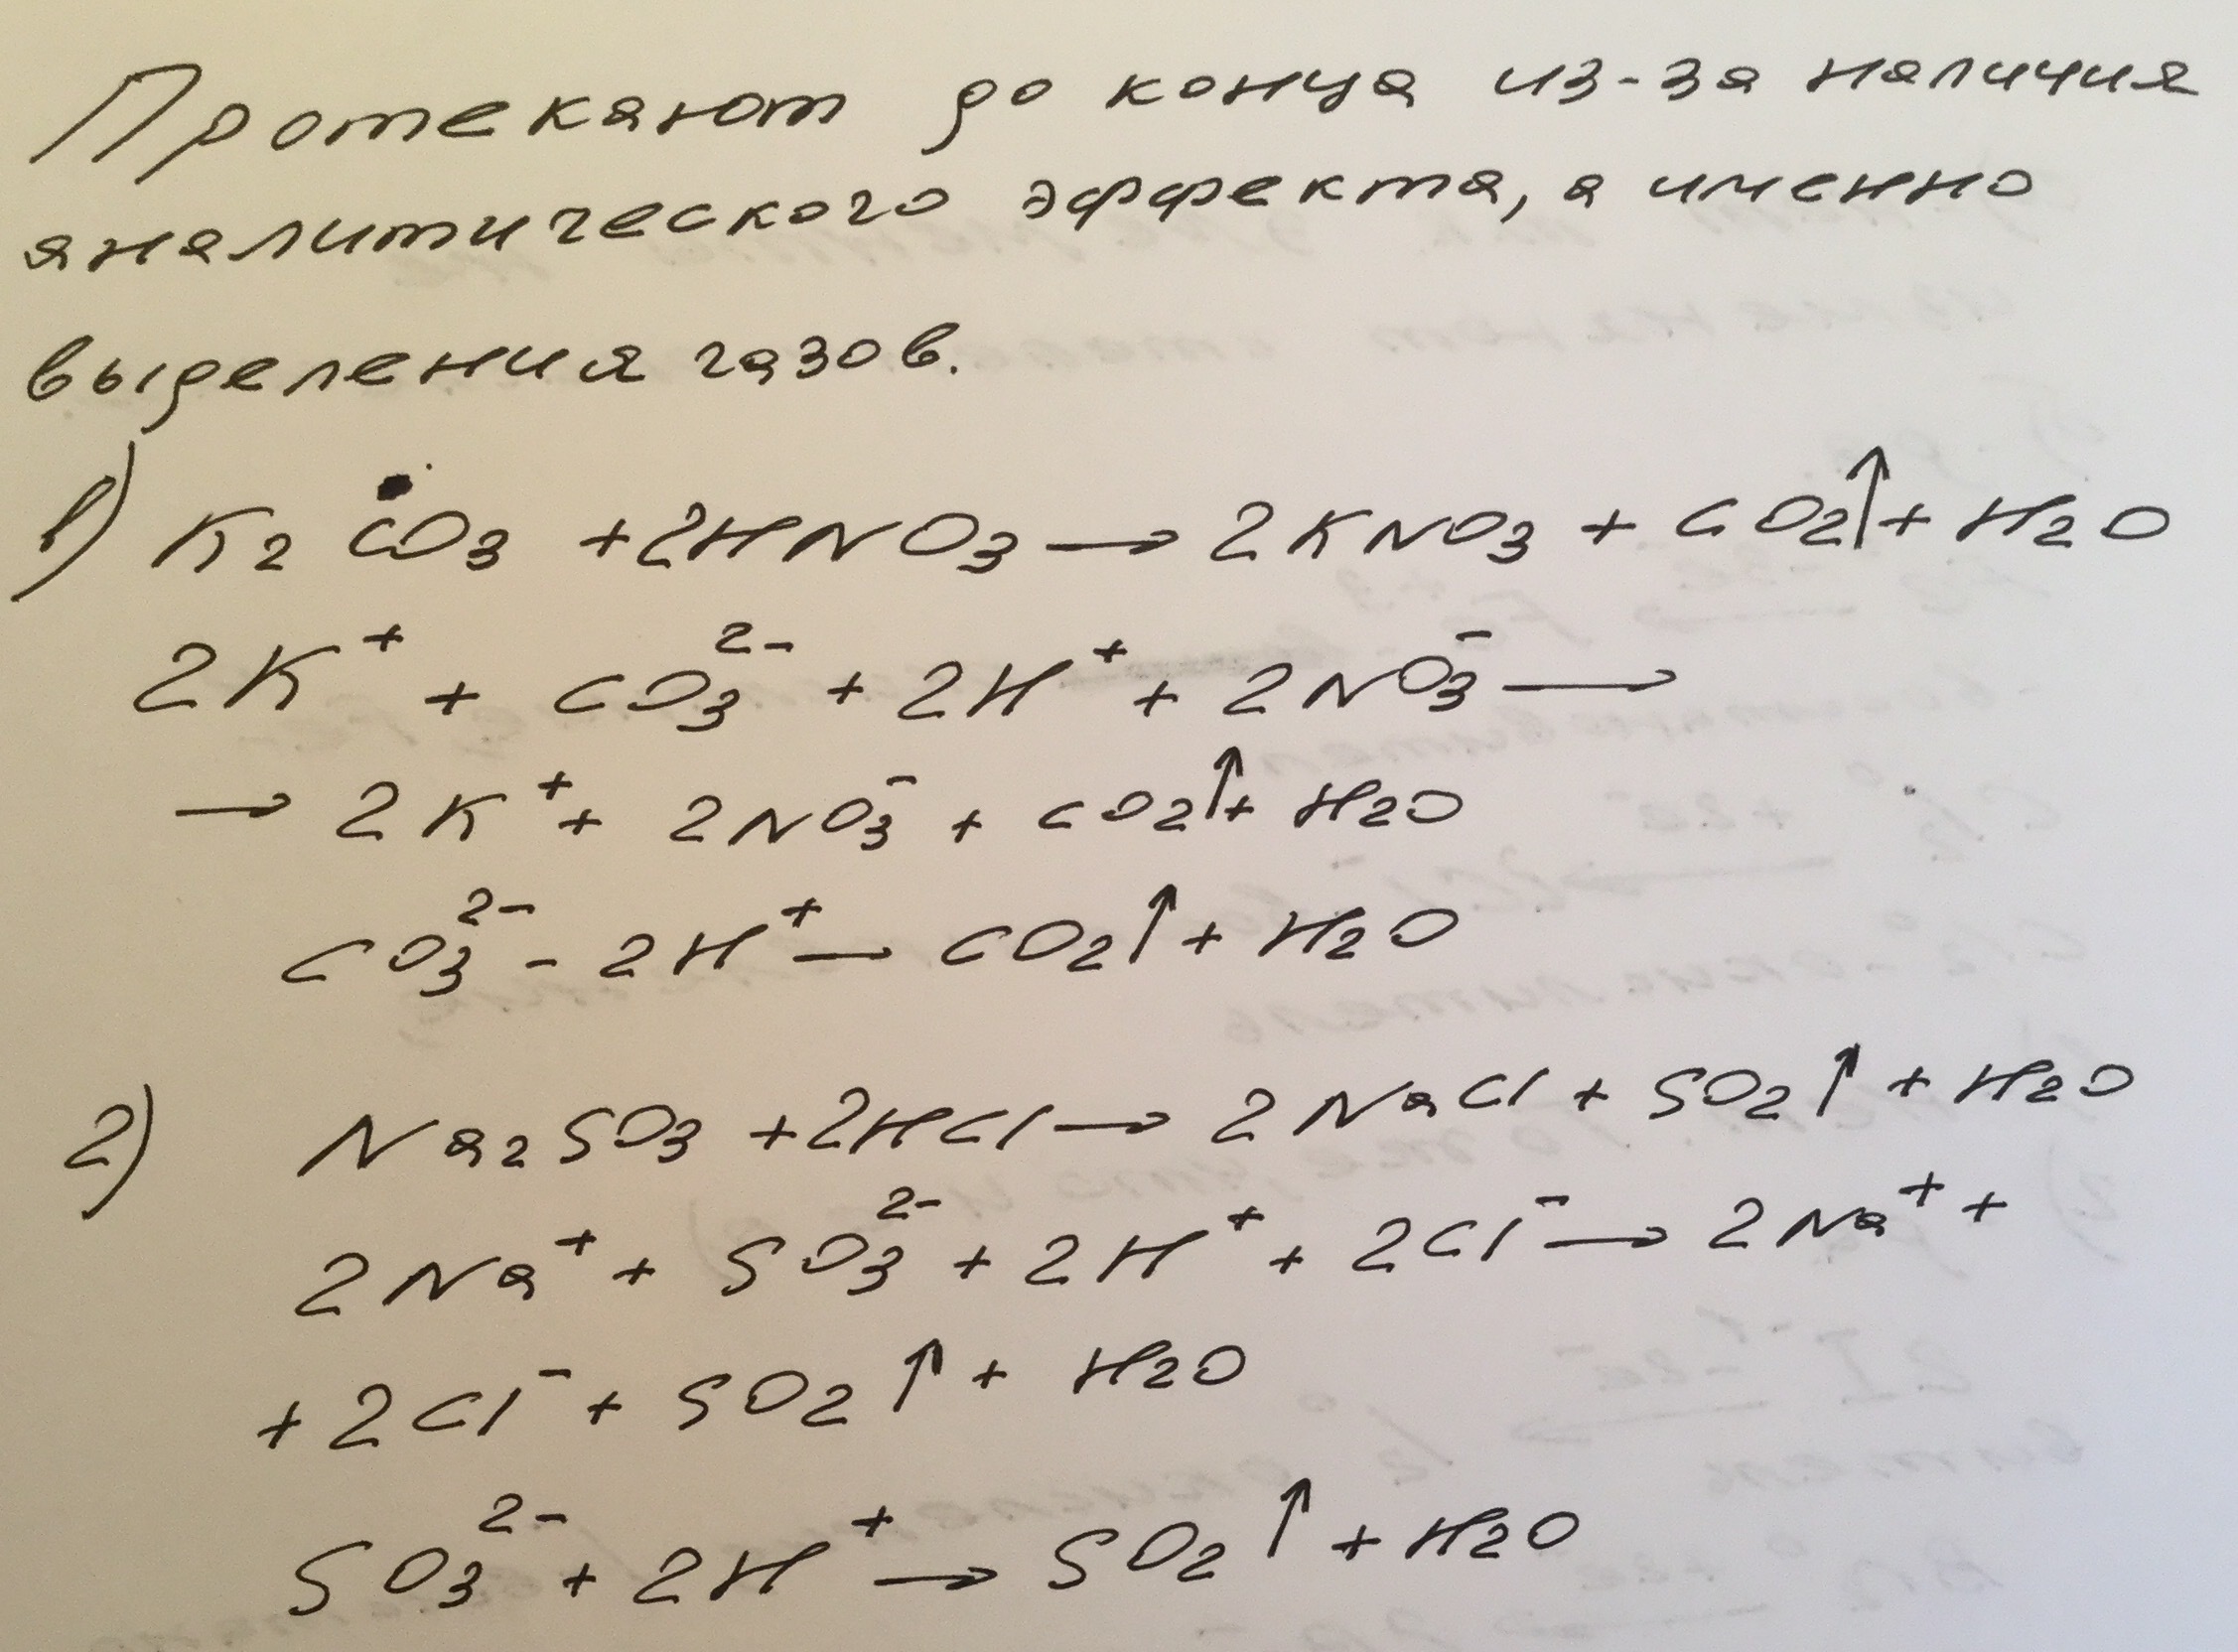 Протекают до конца из-за наличия
аналитического эффекта, а именно
выделения газов.
1) K₂CO₃ + 2HNO₃ → 2KNO₃ + CO₂↑ + H₂O
2K⁺ + CO₃²⁻ + 2H⁺ + 2NO₃⁻ →
→ 2K⁺ + 2NO₃⁻ + CO₂↑ + H₂O
CO₃²⁻ - 2H⁺ → CO₂↑ + H₂O
2) Na₂SO₃ + 2HCl → 2NaCl + SO₂↑ + H₂O
2Na⁺ + SO₃²⁻ + 2H⁺ + 2Cl⁻ → 2Na⁺ +
+ 2Cl⁻ + SO₂↑ + H₂O
SO₃²⁻ + 2H⁺ → SO₂↑ + H₂O